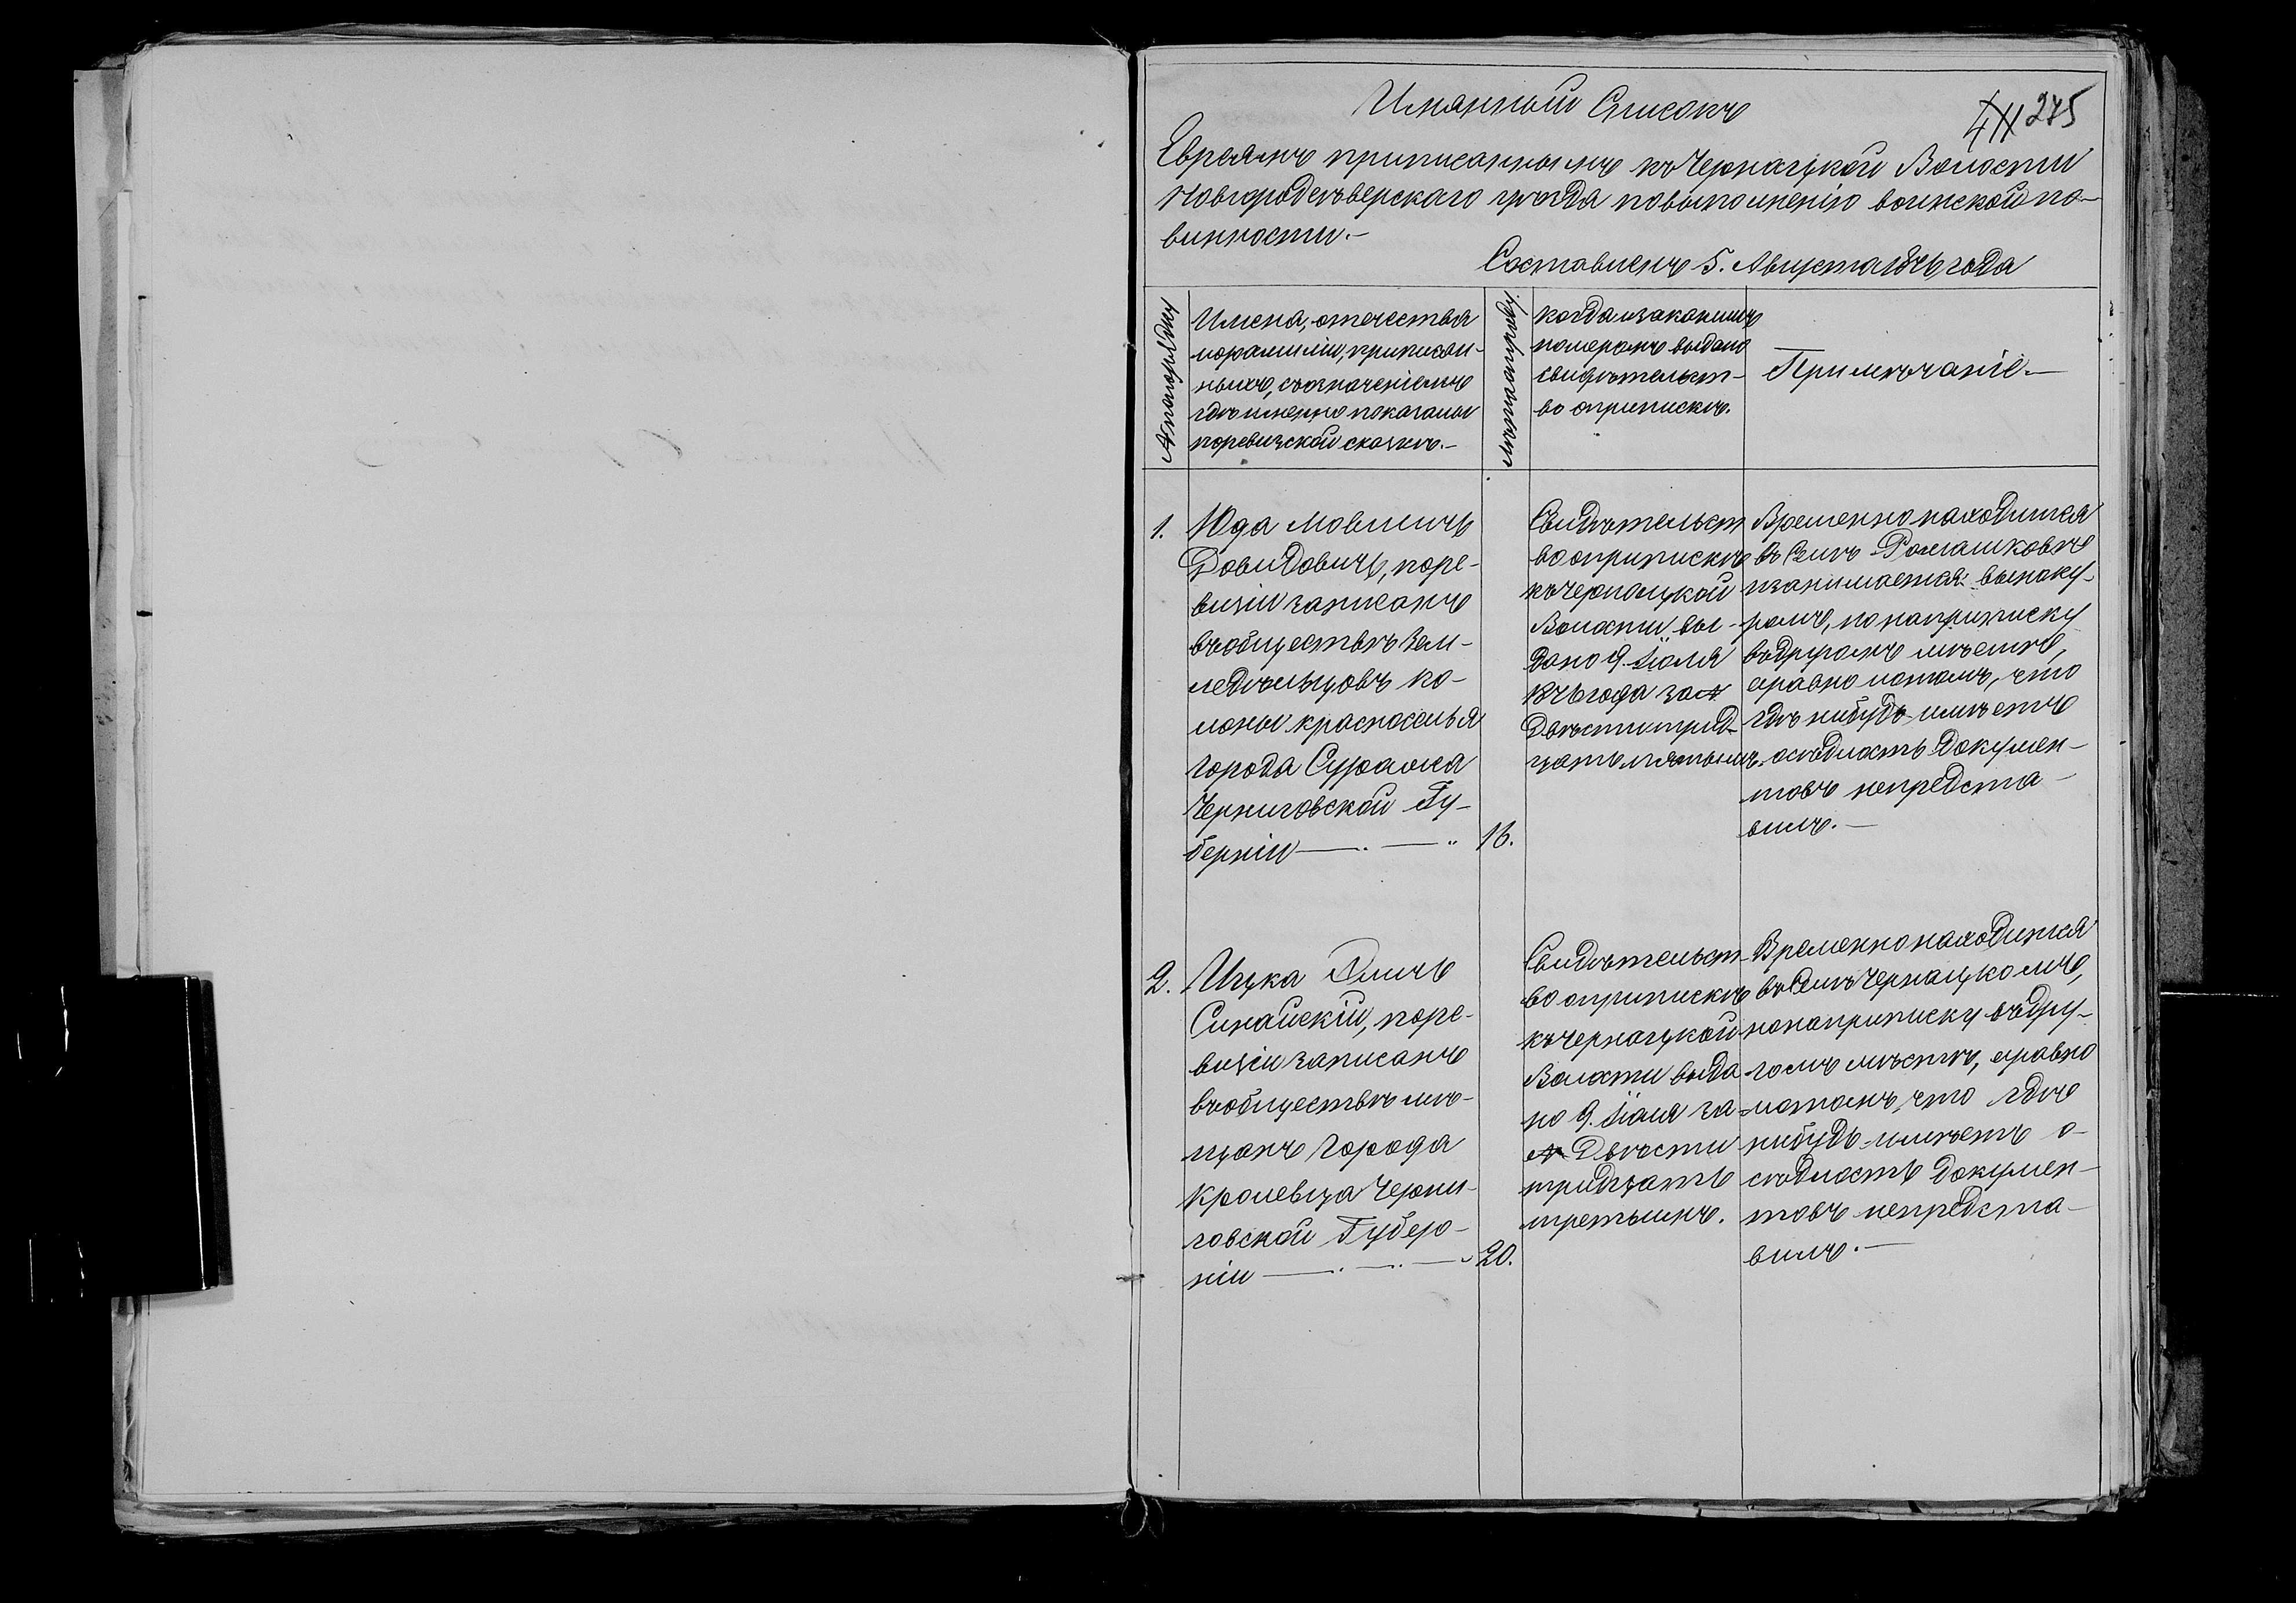 Имянный Списокъ
275
Евреямъ приписаннымъ къ Чернацкой Волости
Новгородсѣверскаго уѣзда по выполненію воинской по-
винности.-
Составленъ 5. Августа 1876 года
№ по порядку
Имена, отчества
и фамиліи, приписан-
ныхъ, съ означеніемъ
гдѣ именно показаны
по ревизской сказкѣ.-
Лѣта
когда и за какимъ
номеромъ выдано
свидѣтельст-
во о припискѣ.
Примѣчаніе.-
1.
Юда Мовшичъ
Давидовичъ, по ре-
визіи записанъ
въ обществѣ зем-
ледѣльцовъ ко-
лоны красноселья
города Суража
Черниговской Гу-
берніи
16.
Свидѣтельст
во о припискѣ
къ Чернацкой
Волости вы-
дано 9. Іюля
1876 года за №
Двѣсти трид-
цать пятымъ.
Временно находится
въ Селѣ Ромашковѣ
и занимается виноку-
ромъ, но на приписку
въ другомъ мѣстѣ,
а равно и о томъ, что
гдѣ нибудь имѣетъ
осѣдлость докумен-
товъ непредста-
вилъ.-
2.
Ицка Эличъ
Синайскій, по ре-
визіи записанъ
въ обществѣ мѣ-
щанъ города
Кролевца Черни-
говской Губер-
ніи
20.
Свидѣтельст-
во о припискѣ
къ Чернацкой
Волости выда
но 9. Іюля за
№ Двѣсти
тридцать
третьимъ.
Временно находится
въ Селѣ Чернацкомъ,
но на приписку въ дру-
гомъ мѣстѣ, а равно
и о томъ, что гдѣ
нибудь имѣетъ о-
сѣдлость докумен-
товъ непредста-
вилъ.-